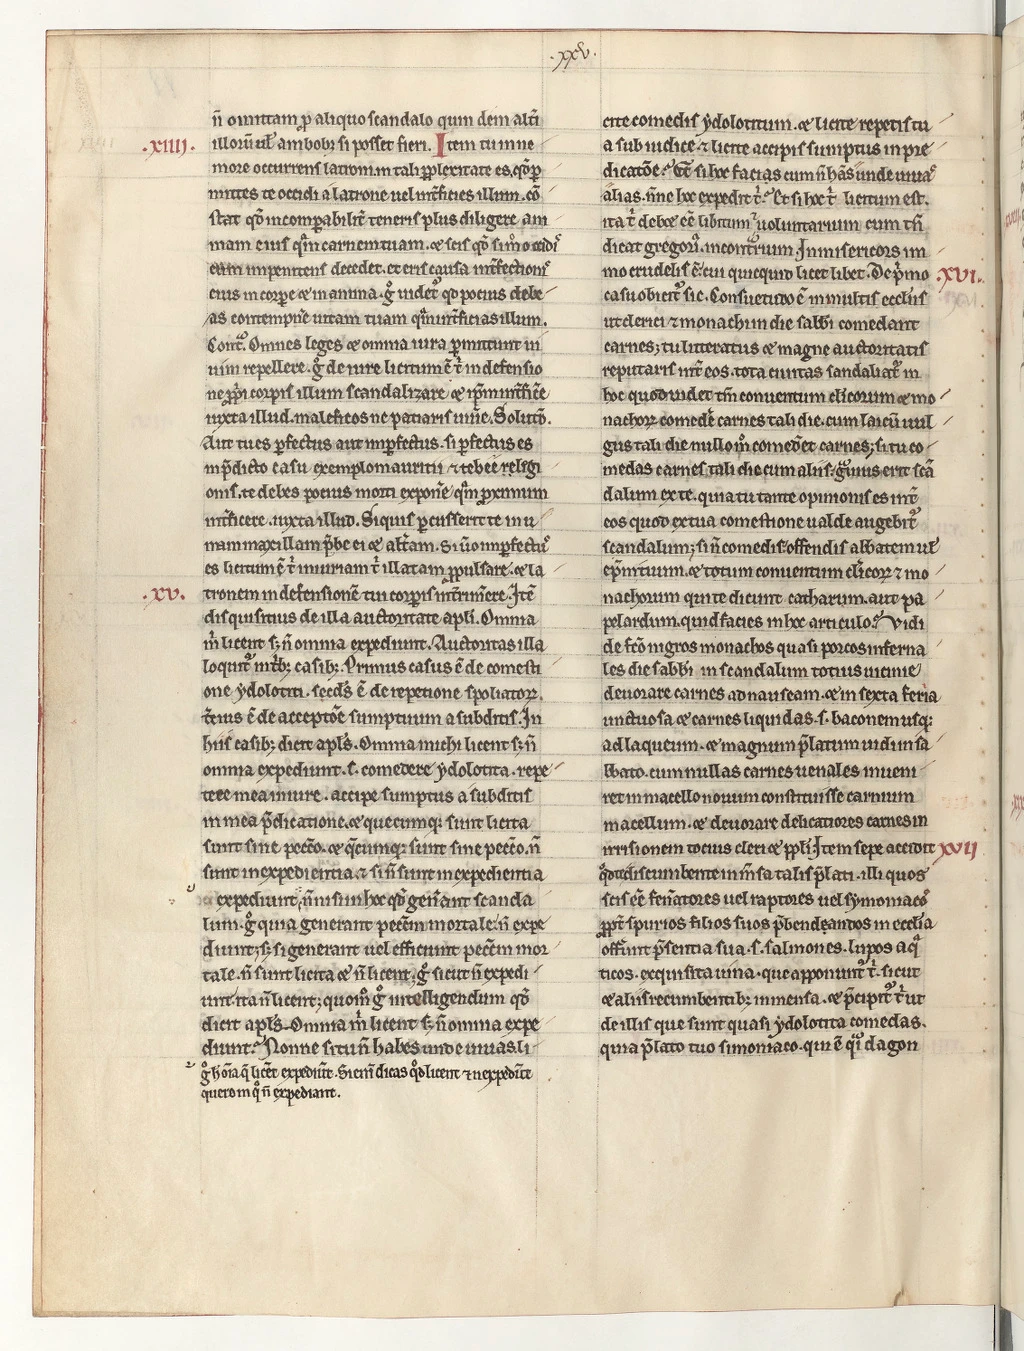 .xxv.
ñ omittam ꝓ aliquo scandalo qui̅dem alt̅i
.xiiii. illoꝝ ul̕ ambobꝫ si posset fieri. Item tu in ne
more occurrens latroni. in tali ꝑplexitate es. qď ꝑ
mittes te occidi a latrone uel int̕ficies illum. cō
stat qď incompabilit̕ teneris plus diligere ani
mam eius qͣm carnem tuam. ⁊ scis qď si
eum impenitens decedet. et eris causa int̕fectionis
eius in corpe ⁊ in anima. gͦ uidet̕ qď pocius debe
as contempne̕ uitam tuam qͣm int̕ficias illum.
Cont̕. Omnes leges ⁊ omnia iura ꝑmittunt ui
uim repellere. gͦ de iure licitum ē t̕ in defensio
ne ꝓpͥi corpis illum scandalizare ⁊ ip̄m int̕ficē
iuxta illud. maleficos ne patiaris uiue̕. Soluto̅.
Aut tu es ꝑfectus aut imꝑfectus. si ꝑfectus es
in p̄dicto casu exemplo mauritii ⁊ tebee religi
onis. te debes pocius morti expone̕ qͣm proximum
int̕ficere. iuxta illud. Si quis ꝑcusserit te in u
nam maxillam p̄be ei ⁊ alt̕am. Si ů imꝑfectus
es licitum ē t̕ iniuriam t̕ illatam ꝓpulsare. ⁊ la
.xv. tronem in defensionē tui corpis int̕imere. Itē
disquisitius de illa auctoritate apl̕i. Omnia
m̕ licent sꝫ ñ omnia expediunt. Auctoritas illa
loquit̕ in tͥbꝫ casibꝫ. Primus casus ē de comesti
one ydolotiti. secds̕ ē de repetione spoliatoꝝ.
t̕cius ē de acceptōe sumptuum a subditis. In
hiis casibꝫ dicit apl̕s. Omnia michi licent sꝫ ñ
omnia expediunt. s̕. comedere ydolotita. repe
tere mea in iure. accipe sumptus a subditis
in mea p̄dicatione. ⁊ quecumqꝫ sunt licita
sunt sine pecco̅. ⁊ q̄cumqꝫ sunt sine pecco̅. ñ
sunt inexpedientia. ⁊ si ñ sunt inexpedientia
expediunt. ñ nisi in hoc qď gen̕ant scanda
lum. gͦ quia generant pecc̄m mortale. ñ expe
diunt; sꝫ si generant uel efficiunt pecc̄m mor
tale. ñ sunt licita ⁊ ñ licent. gͦ sicut ñ expedi
unt ita ñ licent; quom̊ gͦ intelligendum qď
dicit apl̕s. Omnia m̕ licent sꝫ ñ omnia expe
diunt. Nonne si tu ñ habes unde uiuas. li
gͦ ho̅ia q̄ licēt expediu̅t. Si eni̅ dicas qď licent ⁊ ñ expediu̅t
quero in qͦ ñ expediant.
cite comedis ydolotitum. ⁊ licite repetis tu
a sub iudice ⁊ licite accipis sumptus in pre
dicatōe. Set̕ si hoc facias cum ñ ha̅s unde uiuas
alias. nn̄e hoc expedit t̕. Et si hoc t̕ licitum est.
ita t̕ debet eē libitum ⁊ uoluntarium cum tn̄
dicat gregori̕. in contͣrium. Inmisericors im
mo crudelis ē. cui quicquid licet libet. De pͥmo .xvi.
casu obicit̕ sic. Consuetudo ē in multis ecclīis
ut clerici ⁊ monachi in die sabb̕i comedant
carnes; tu litteratus ⁊ magne auctoritatis
reputaris int̕ eos. tota ciuitas scandaliat̕ in
hoc quod uidet tm̄ conuentum cl̕icorum ⁊ mo
nachoꝝ comede̕ carnes tali die. cum laicū uul
gus tali die nullo m̊ comedet̕ carnes; si tu co
medas carnes tali die cum aliis. gͣuius erit scā
dalum ex te. quia tu tante opinionis es int̕
eos quod ex tua comestione ualde augebit̕
scandalum; si ñ comedis. offendis abbatem ul̕
ep̄m tuum. ⁊ totum conuentum cl̕icoꝝ ⁊ mo
nachorum qui te dicunt catharum. aut pa
pelardum. quid facies in hoc articulo. Vidi
de fc̄o nigros monachos quasi porcos inferna
les die sabbi in scandalum totius uicinie
deuorare carnes ad nauseam. ⁊ in sexta feria
unctuosa ⁊ carnes liquidas. s̕. baconem usqꝫ
ad laqueum. ⁊ magnum p̄latum uidi in sa
bbato. cum nullas carnes uenales inueni
ret in macello nouum constituisse carnium
macellum. ⁊ deuorare delicatiores carnes in
irrisionem tocius cleri ⁊ ppl̕i. Item sepe accidit xvii
discumbente in m̄sa talis p̄lati. illi quos
scis eē fen̕atores uel raptores uel symoniacos
ꝓpt̕ spurios filios suos p̄bendandos in ecclīa
offerunt p̄sentia sua. s̕. salmones. lupos aqͣ
ticos. exquisita uina. que apponunt̕ t̕. sicut
⁊ aliis recumbentibꝫ in mensa. ⁊ p̄cipit̕ t̕ ut
de illis que sunt quasi ydolotita comedas.
quia p̄lato tuo simoniaco. qui ē qͣi dagon